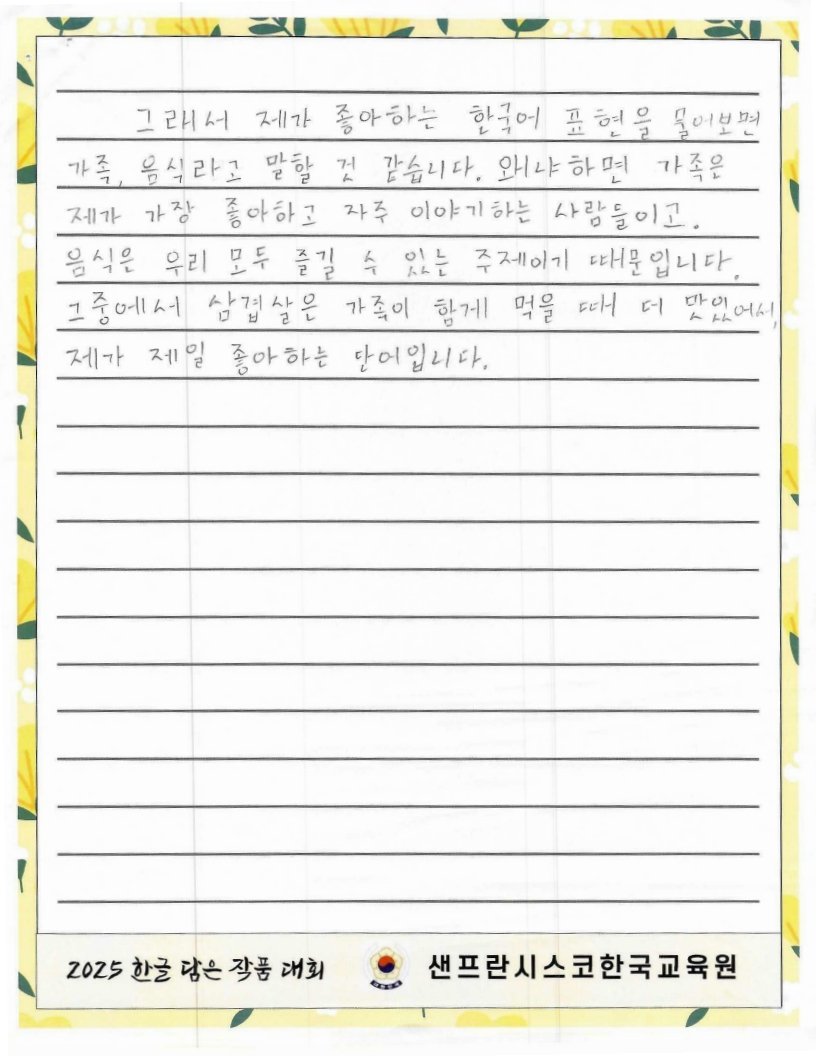 그래서 제가 좋아하는 한국어 표현을 물어보면
가족, 음식라고 말할 것 같습니다. 왜냐하면 가족은
제가 가장 좋아하고 자주 이야기하는 사람들이고.
음식은 우리 모두 즐길 수 있는 주제이기 때문입니다.
그중에서 삼겹살은 가족이 함께 먹을 때 더 맛있어서,
제가 제일 좋아하는 단어입니다.
2025 한글 담은 작품 대회
샌프란시스코한국교육원